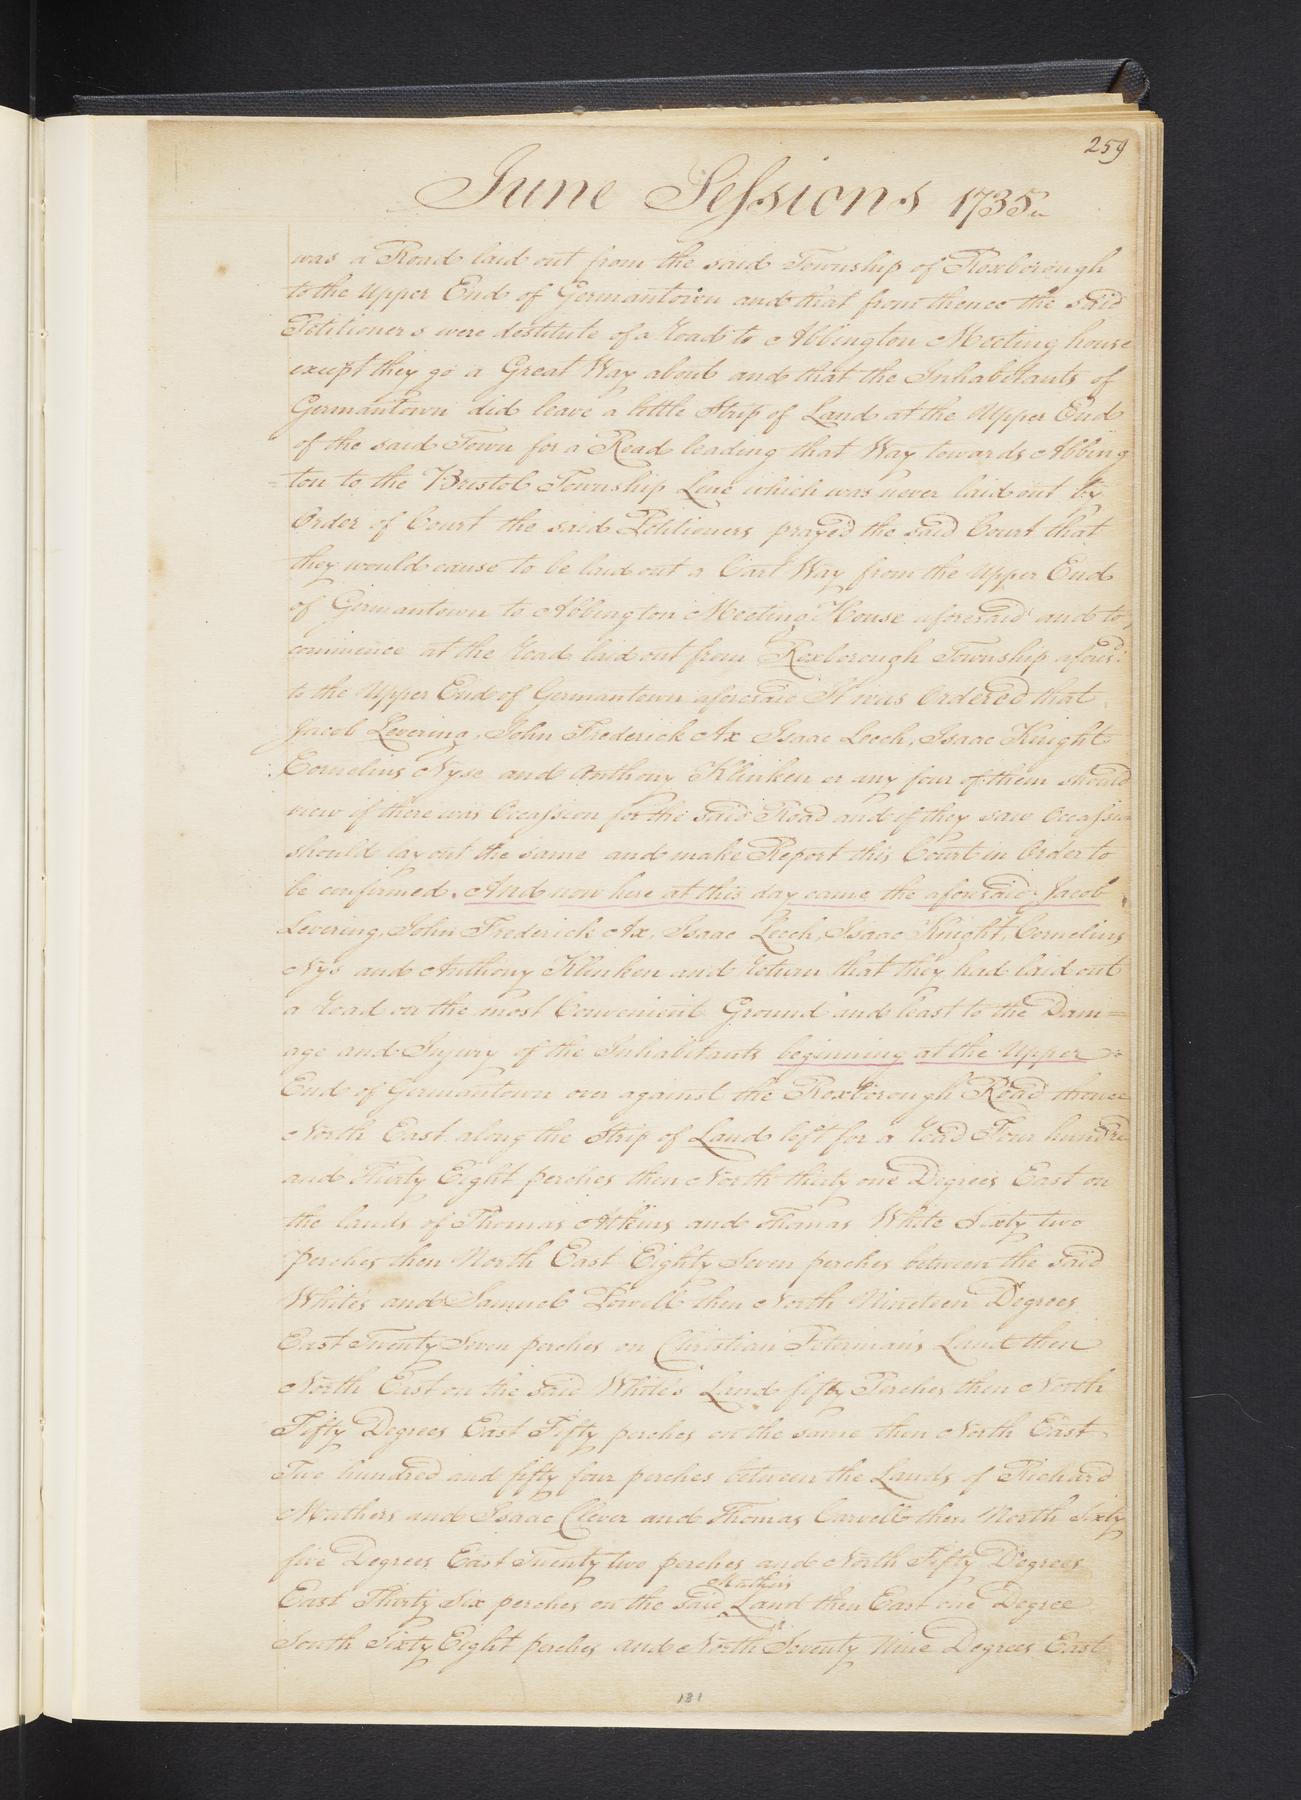 259
June Sessions 1735
was a Road laid out from the said Township of Roxborough
to the Upper End of Germantown and that from thence the said
Petitioners were destitute of a road to Abbington Meeting house
except they go a Great Way about and that the Inhabitants of
Germantown did leave a little Strip of Land at the Upper End
of the said Town for a Road leading that Way towards Abbing
ton to the Bristol Township Line which was never laid out by
Order of Court the said Petitioners prayed the said Court that
they would cause to be laid out a Cart Way from the Upper End
of Germantown to Abbington Meeting House aforesaid and to
commence at the road laid out from Roxborough Township afores:d
to the Upper End of Germantown aforesaid It was Ordered that
Jacob Levering, John Frederick Ax Isaac Leech, Isaac Knight
Cornelius Nyse and Anthony Klinken or any four of them should
view if there was Occassion for the said Road and if they saw Occassion
should lay out the same and make Report this Court in Order to
be confirmed. And now here at this day came the aforesaid Jacob
Levering, John Frederick Ax, Isaac Leech, Isaac Knight, Cornelius
Nys and Anthony Klinken and return that they had laid out
a road on the most Convenient Ground and least to the Dam=
age and Injury of the Inhabitants beginning at the Upper
End of Germantown over against the Roxborough Road thence
North East along the Strip of Land left for a road Four hundred
and Thirty Eight perches then North thirty one Degrees East on
the lands of Thomas Atkins and Thomas White Sixty two
perches then North East Eighty Seven perches between the said
White's and Samuel Powell then North Nineteen Degrees
East Twenty Seven perches on Christian Peterman's Land then
North East on the said White's Land fifty Perches then North
Fifty Degrees East Fifty perches on the same then North East
Two hundred and fifty four perches between the Lands of Richard
Mathers and Isaac Clever and Thomas Carvell then North Sixty
five Degrees East Twenty two perches and North Fifty Degrees
East Thirty Six perches on the said Mathers Land then East one Degree
South Sixty Eight perches and North Seventy Nine Degrees East
181